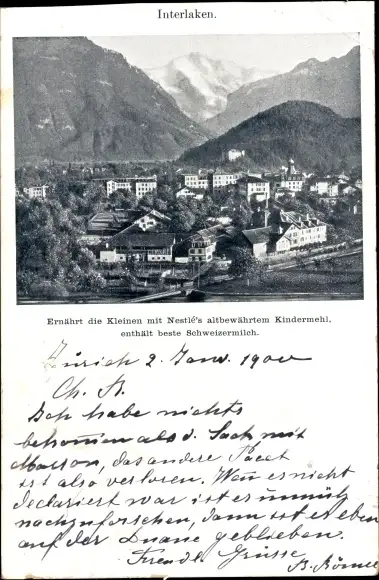 Interlaken.
Ernährt die Kleinen mit Nestlé's altbewährtem Kindermehl,
enthält beste Schweizermilch.
Zürich 2. Janv. 1900
Ch. A.
Ich habe nichts
bekommen als d. Sack mit
, das andere Pacet
ist also verloren. Wenn es nicht
declariert war ist es unnütz
nachzuforschen, dann ist es eben
auf der Duane geblieben.
Freundl. Grüsse